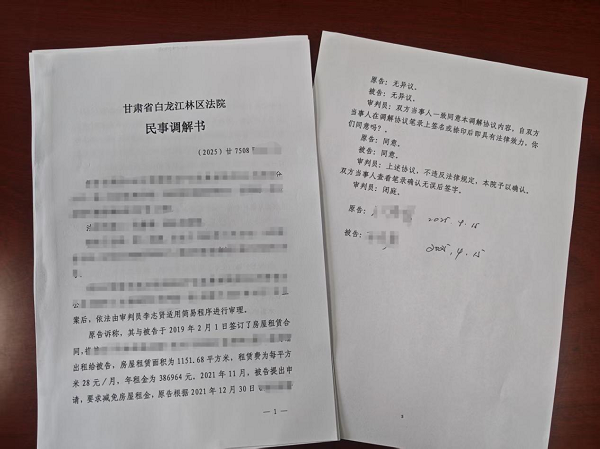 甘肃省白龙江林区法院
民事调解书
（2025）甘 7508
案后，依法由审判员李志贤适用简易程序进行审理。
原告诉称，其与被告于 2019 年 2 月 1 日签订了房屋租赁合
同，
出租给被告，房屋租赁面积为 1151.68 平方米，租赁费为每平方
米 28 元／月，年租金为 386964 元。2021 年 11 月，被告提出申
请，要求减免房屋租金，原告根据 2021 年 12 月 30 日
— 1 —
原告：无异议。
被告：无异议。
审判员：双方当事人一致同意本调解协议内容，自双方
当事人在调解协议笔录上签名或捺印后即具有法律效力，你
们同意吗？。
原告：同意。
被告：同意。
审判员：上述协议，不违反法律规定，本院予以确认。
双方当事人查看笔录确认无误后签字。
审判员：闭庭。
原告：
2025.4.15
被告：
2025.4.15